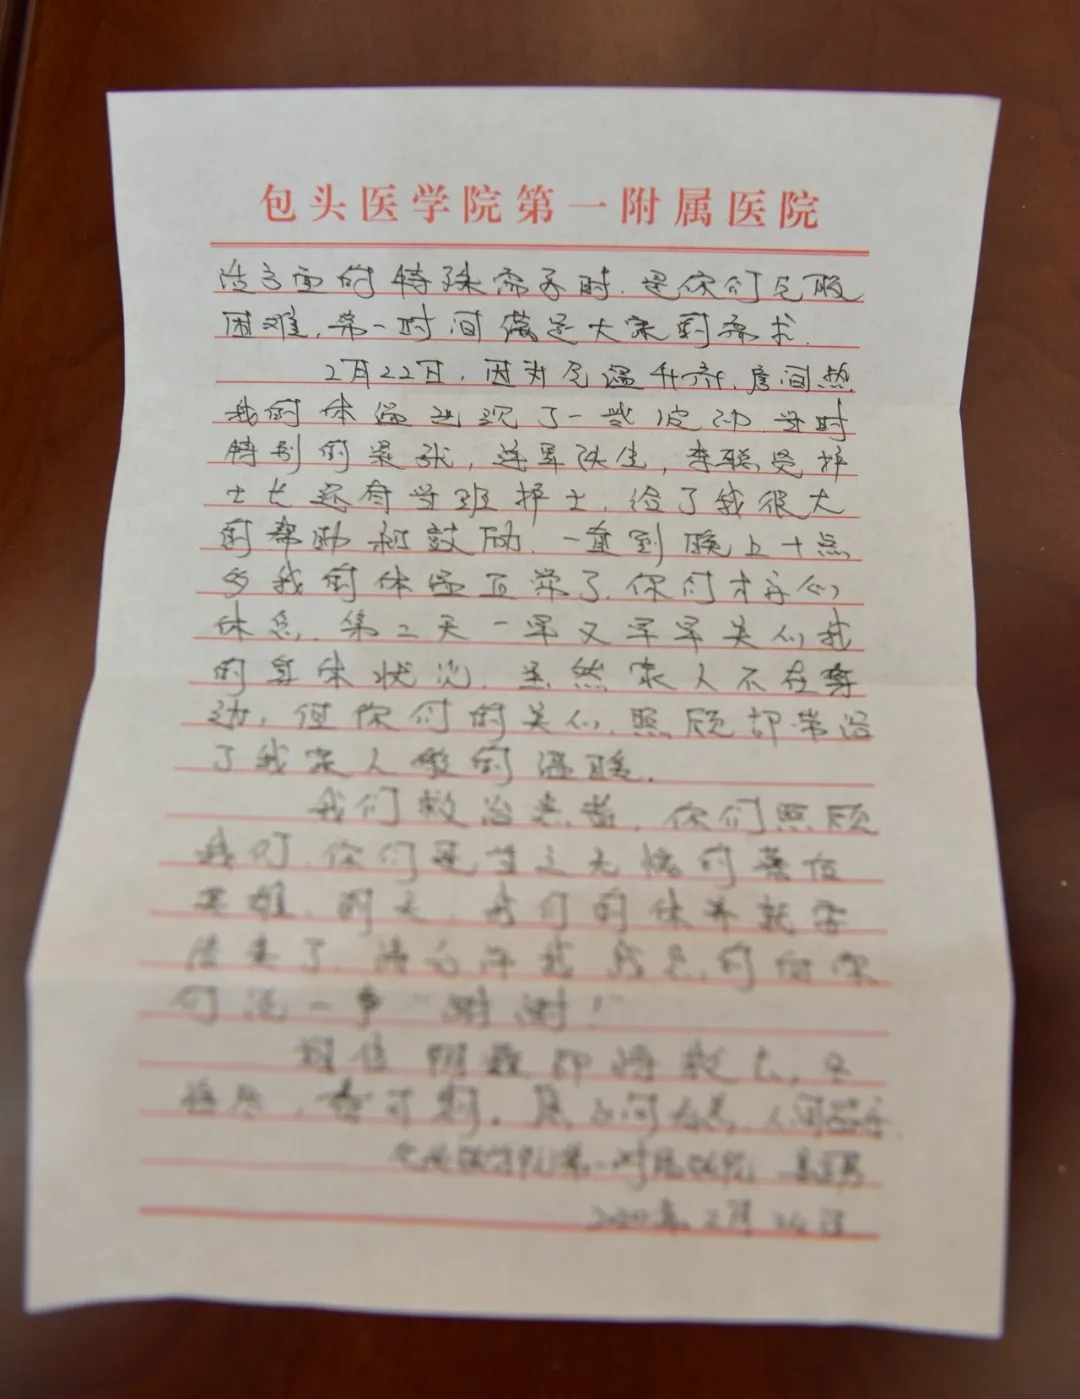 包头医学院第一附属医院
活方面的特殊需求时，是你们克服
困难，第一时间满足大家的需求。
2月22日，因为气温升高，房间热
我的体温出现了一些波动，当时
特别的紧张，连军医生，李聪慧护
士长还有当班护士，给了我很大
的帮助和鼓励，一直到晚上十点
多我的体温正常了，你们才安心
休息，第二天一早又早早关心我
的身体状况，虽然家人不在身
边，但你们的关心、照顾却带给
了我家人般的温暖。
我们救治患者，你们照顾
我们，你们是当之无愧的幕后
英雄，明天，我们的休养就要
结束了，请允许我
们说一声“谢谢！”
相信阴霾即将散去，冬
将尽，春可期，
包头医学院第一附属医院
2020年2月